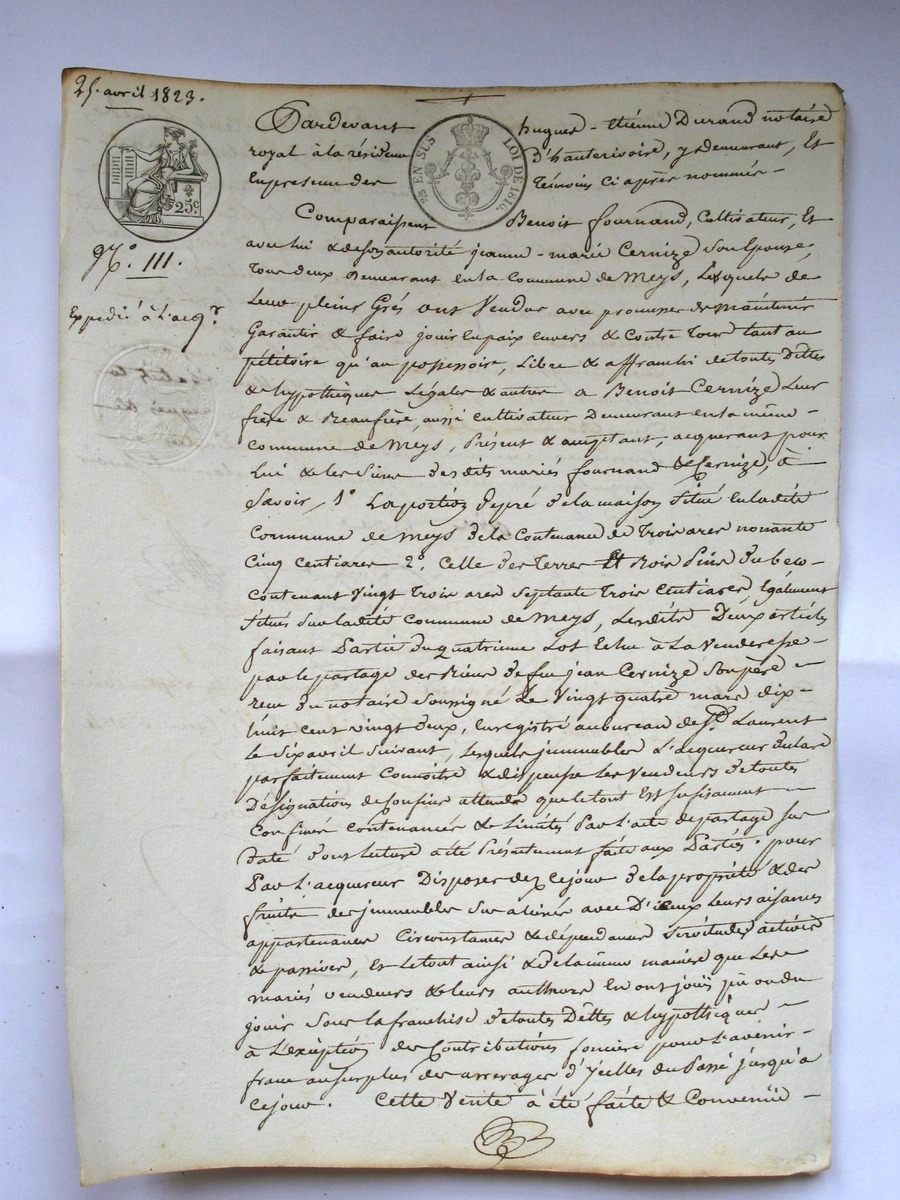 25. avril 1823.
25 c.
25 EN SUS LOI DE 1816.
N.° 111.
Expédié à l'acq.r
Pardevant hugues-étienne Durand notaire
royal à la résidence d'hauterivoire, y demeurant, Et
En presence des témoins Ci après nommés -
Comparaissent Benoit fournand, Cultivateur, Et
avec lui & de son autorité jeanne-marie Cernize Son Epouse,
tous deux Demeurant en la Commune de Meys, Lesquels de
Leurs pleins Grés ont Vendu avec promesse de Maintenir
Garantir & faire jouir En paix envers & Contre Tous tant au
pétitoire qu'au possessoire, Libre & affranchi de toutes dettes
& hypothèques Légales & autres a Benoit Cernize Leur
frère & Beaufrère, aussi cultivateur Demeurant en la même -
commune de Meys, Présent & acceptant, acquerant pour
Lui & les Siens desdits mariés fournand & Cernize, à
Savoir, 1.° La portion de pré de la maison Situé en ladite
Commune de Meys de la Contenance de Trois ares nonante
Cinq Centiares 2.° Celle des Terres Et Bois Pins du
contenant Vingt Trois ares Septante Trois Centiares, Egalement
Situés Sur ladite Commune de Meys, Lesdits Deux articles
faisant Partie du quatrième Lot Echu à La Venderesse -
par le partage des Biens de feu jean Cernize Son père -
reçu du notaire Soussigné Le Vingt quatre mars dix-
huit cent vingt deux, Enregistré au bureau de St. Laurent
le Six avril Suivant, Lesquels jmmeubles L'acquereur declare
parfaitement Connoitre & dispense Les Vendeurs de toutes
Désignations de Confins attendu que le tout Est Sufisament -
Confiné contenancé & Limité Par L'acte de partage Sus
daté dont Lecture a été Présentement faite aux Parties, pour
Par L'acquereur Disposer dez Cejour de la propriété & des
fruits des jmmeubles Sus aliénés avec D'iceux Leurs aisances
appartenances Circonstances & dépendances Servitudes actives
& passives, Et Le tout ainsi & de la même manière que Les
mariés vendeurs & leurs autheurs En ont joüi pû ou du
jouir Sous la franchise de toutes Dêttes & hypothèques -
à L'exception des Contributions foncière pour L'avenir -
franc au Surplus des arrerages d'jcelles du Passé jusqu'à
Cejour. Cette Vente à été faite & Convenüe -